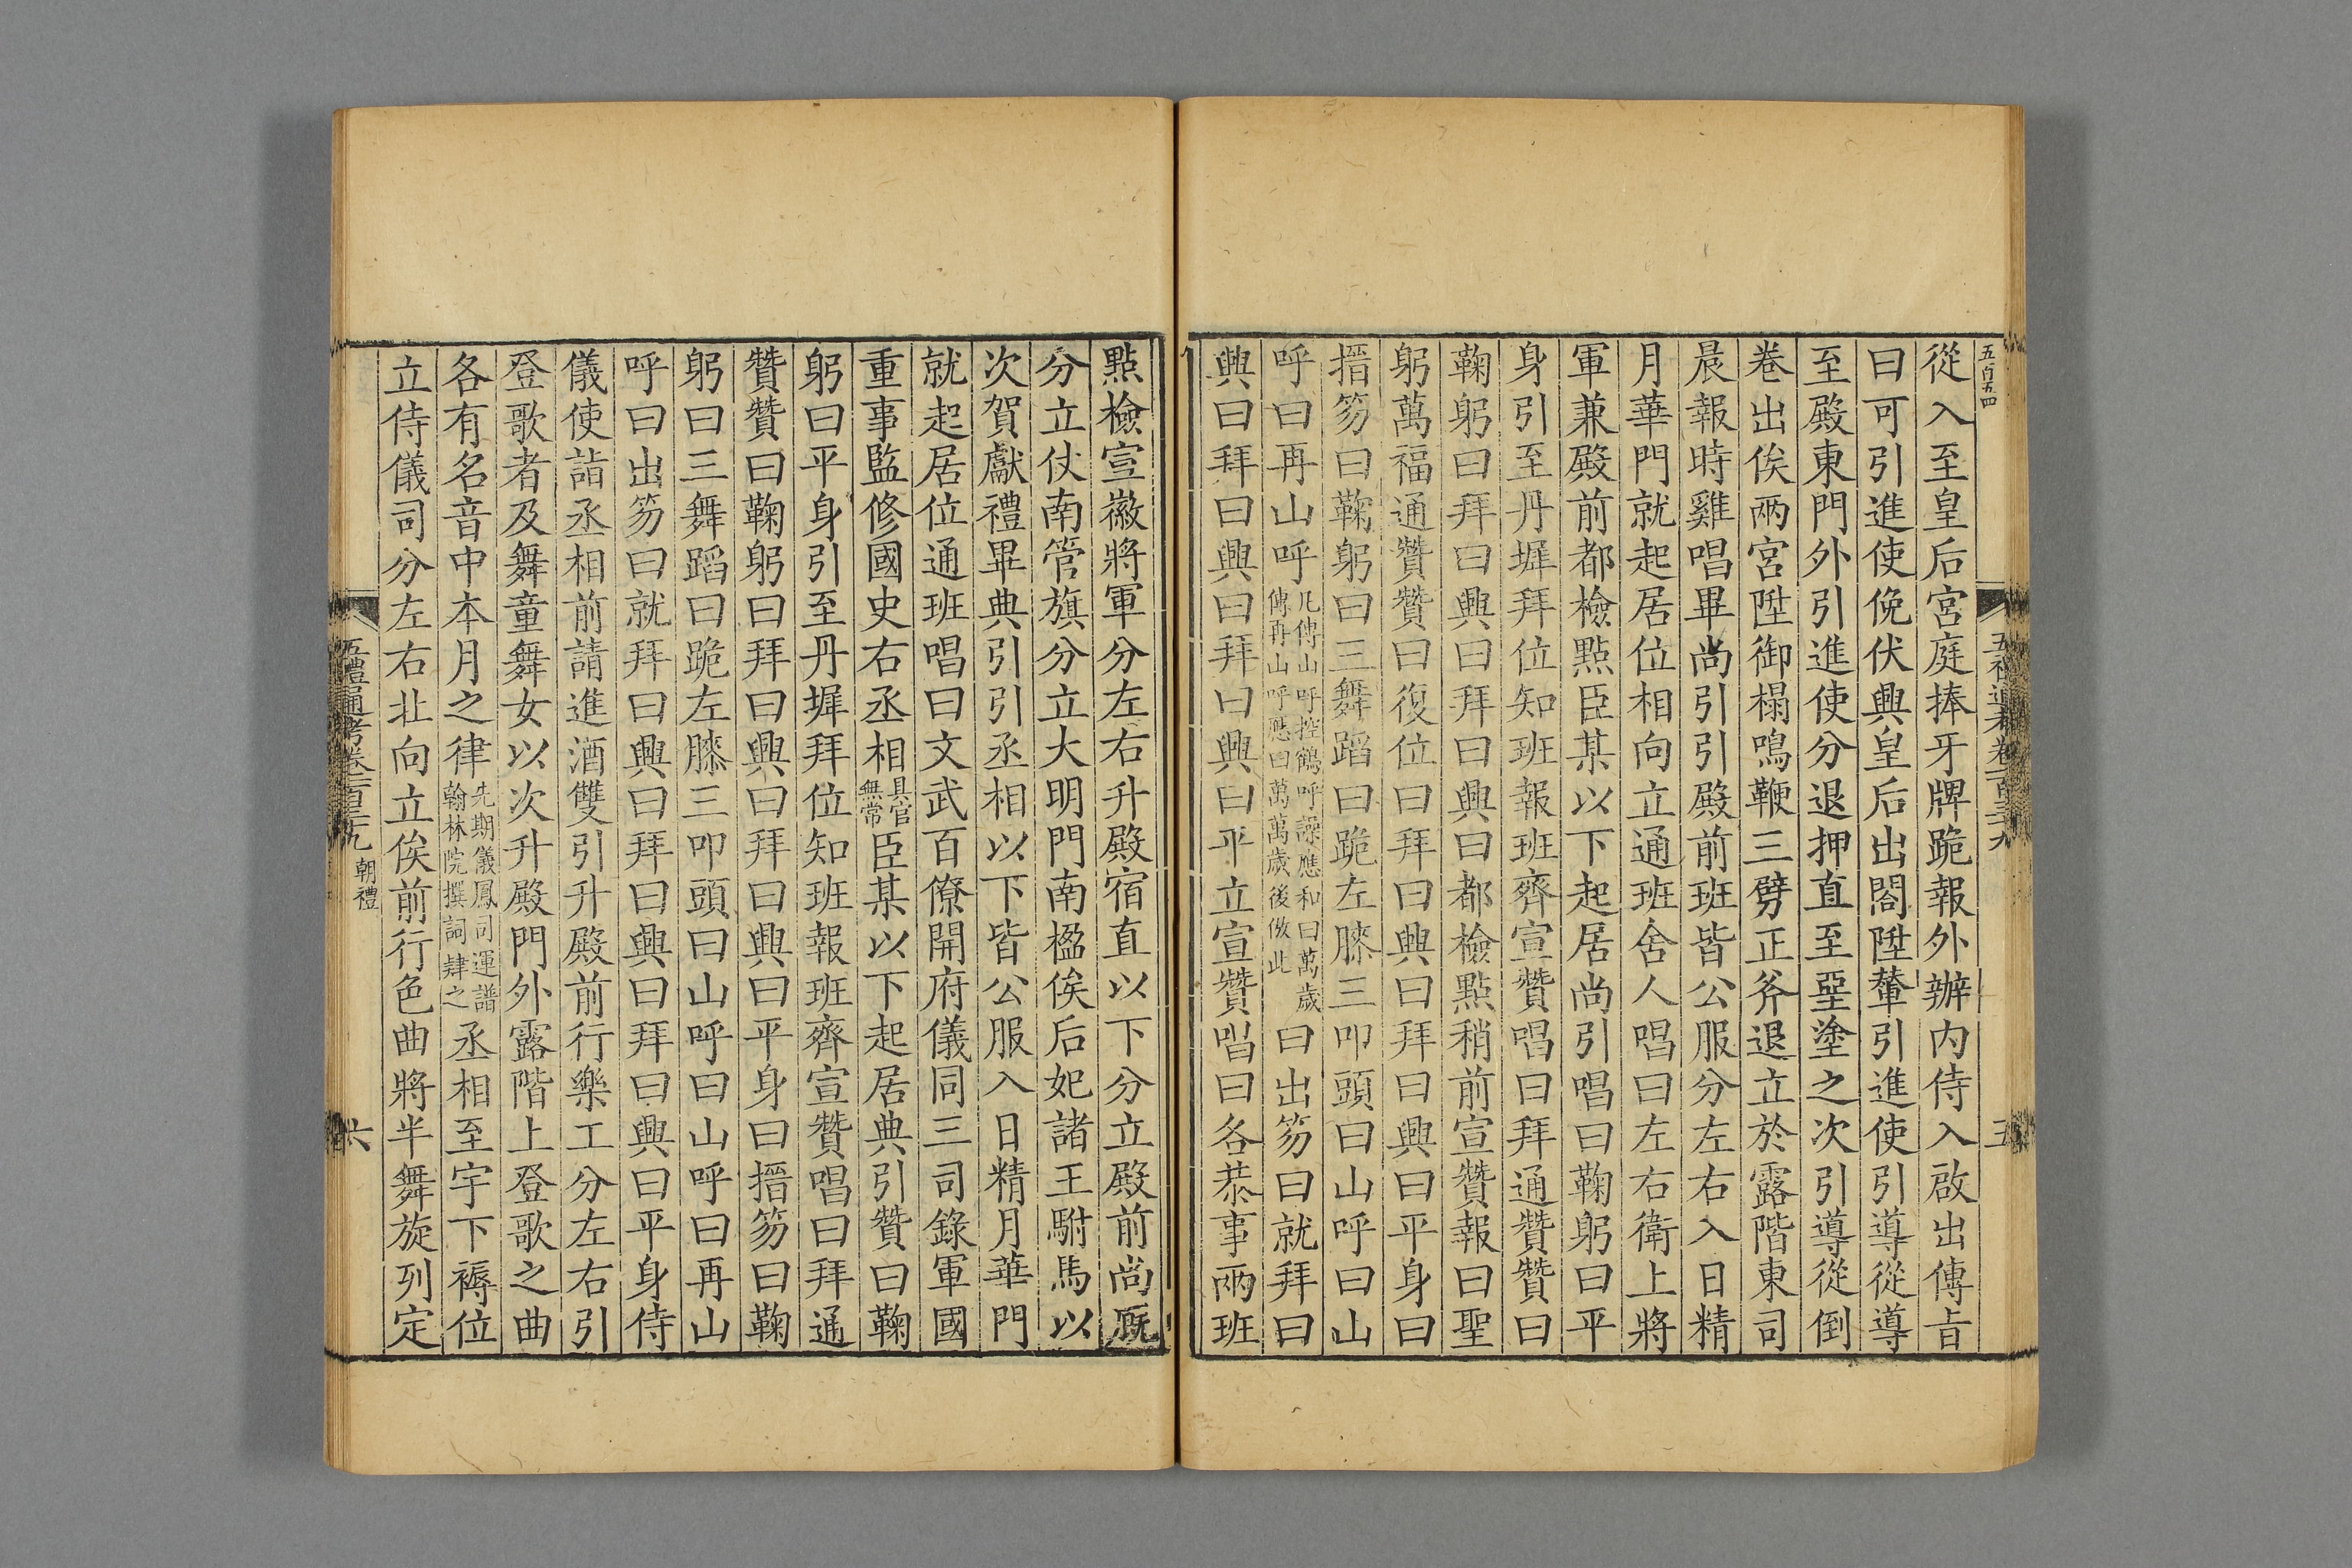 五百五四
從入至皇后宮庭捧牙牌跪報外辦内侍入啟出傳㫖
曰可引進使俛伏興皇后出閤陞輦引進使引導從導
至殿東門外引進使分退押直至堊塗之次引導從倒
卷出俟兩宮陞御榻鳴鞭三劈正斧退立於露階東司
晨報時雞唱畢尚引引殿前班皆公服分左右入日精
月華門就起居位相向立通班舍人唱曰左右衛上將
軍兼殿前都檢點臣某以下起居尚引唱曰鞠躬曰平
身引至丹墀拜位知班報班齊宣贊唱曰拜通贊贊曰
鞠躬曰拜曰興曰拜曰興曰都檢點稍前宣贊報曰聖
躬萬福通贊贊曰復位曰拜曰興曰拜曰興曰平身曰
搢笏曰鞠躬曰三舞蹈曰跪左膝三叩頭曰山呼曰山
呼曰再山呼凡傳山呼控鶴呼譟應和曰萬歲傳再山呼應曰萬萬歲後倣此曰出笏曰就拜曰
興曰拜曰興曰拜曰興曰平立宣贊唱曰各恭事兩班
點檢宣徽將軍分左右升殿宿直以下分立殿前尚厩
分立仗南管旗分立大明門南楹俟后妃諸王駙馬以
次賀獻禮畢典引引丞相以下皆公服入日精月華門
就起居位通班唱曰文武百僚開府儀同三司錄軍國
重事監修國史右丞相具官無常臣某以下起居典引贊曰鞠
躬曰平身引至丹墀拜位知班報班齊宣贊唱曰拜通
贊贊曰鞠躬曰拜曰興曰拜曰興曰平身曰搢笏曰鞠
躬曰三舞蹈曰跪左膝三叩頭曰山呼曰山呼曰再山
呼曰出笏曰就拜曰興曰拜曰興曰拜曰興曰平身侍
儀使詣丞相前請進酒雙引升殿前行樂工分左右引
登歌者及舞童舞女以次升殿門外露階上登歌之曲
各有名音中本月之律先期儀鳳司運譜翰林院撰詞肄之丞相至宇下褥位
立侍儀司分左右北向立俟前行色曲將半舞旋列定
五禮通考卷一百三十九 朝禮
六